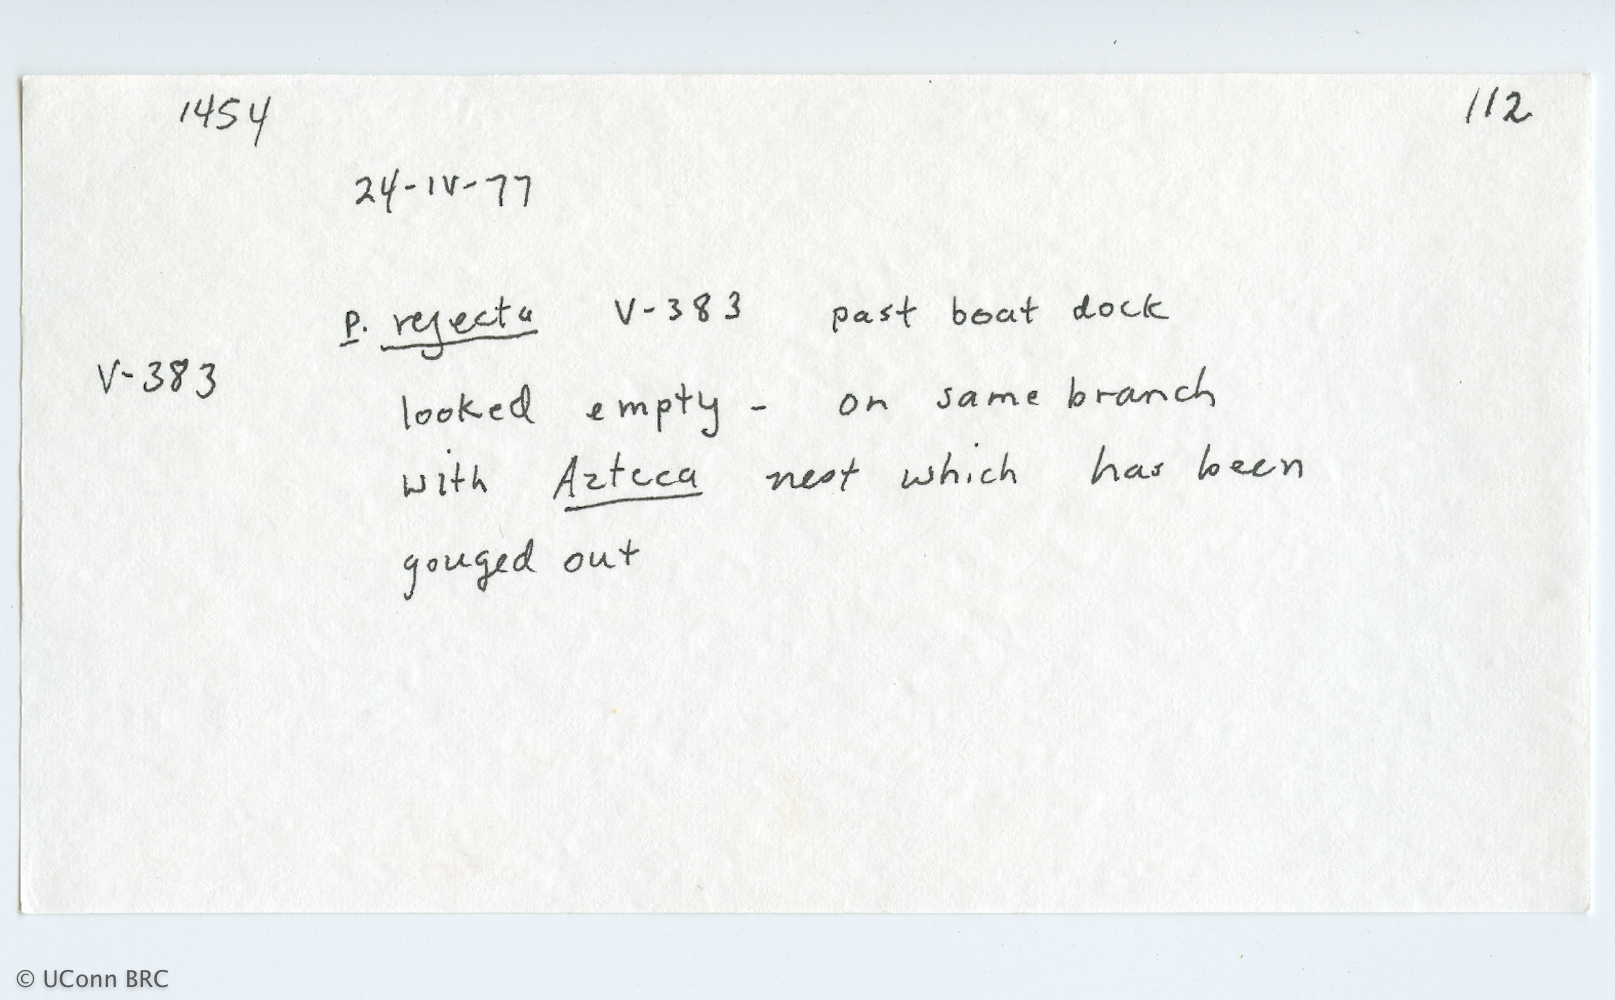 1454 112
24-IV-77
P. rejecta V-383 past boat dock
V-383
looked empty - on same branch
with Azteca nest which has been
gouged out
© UConn BRC